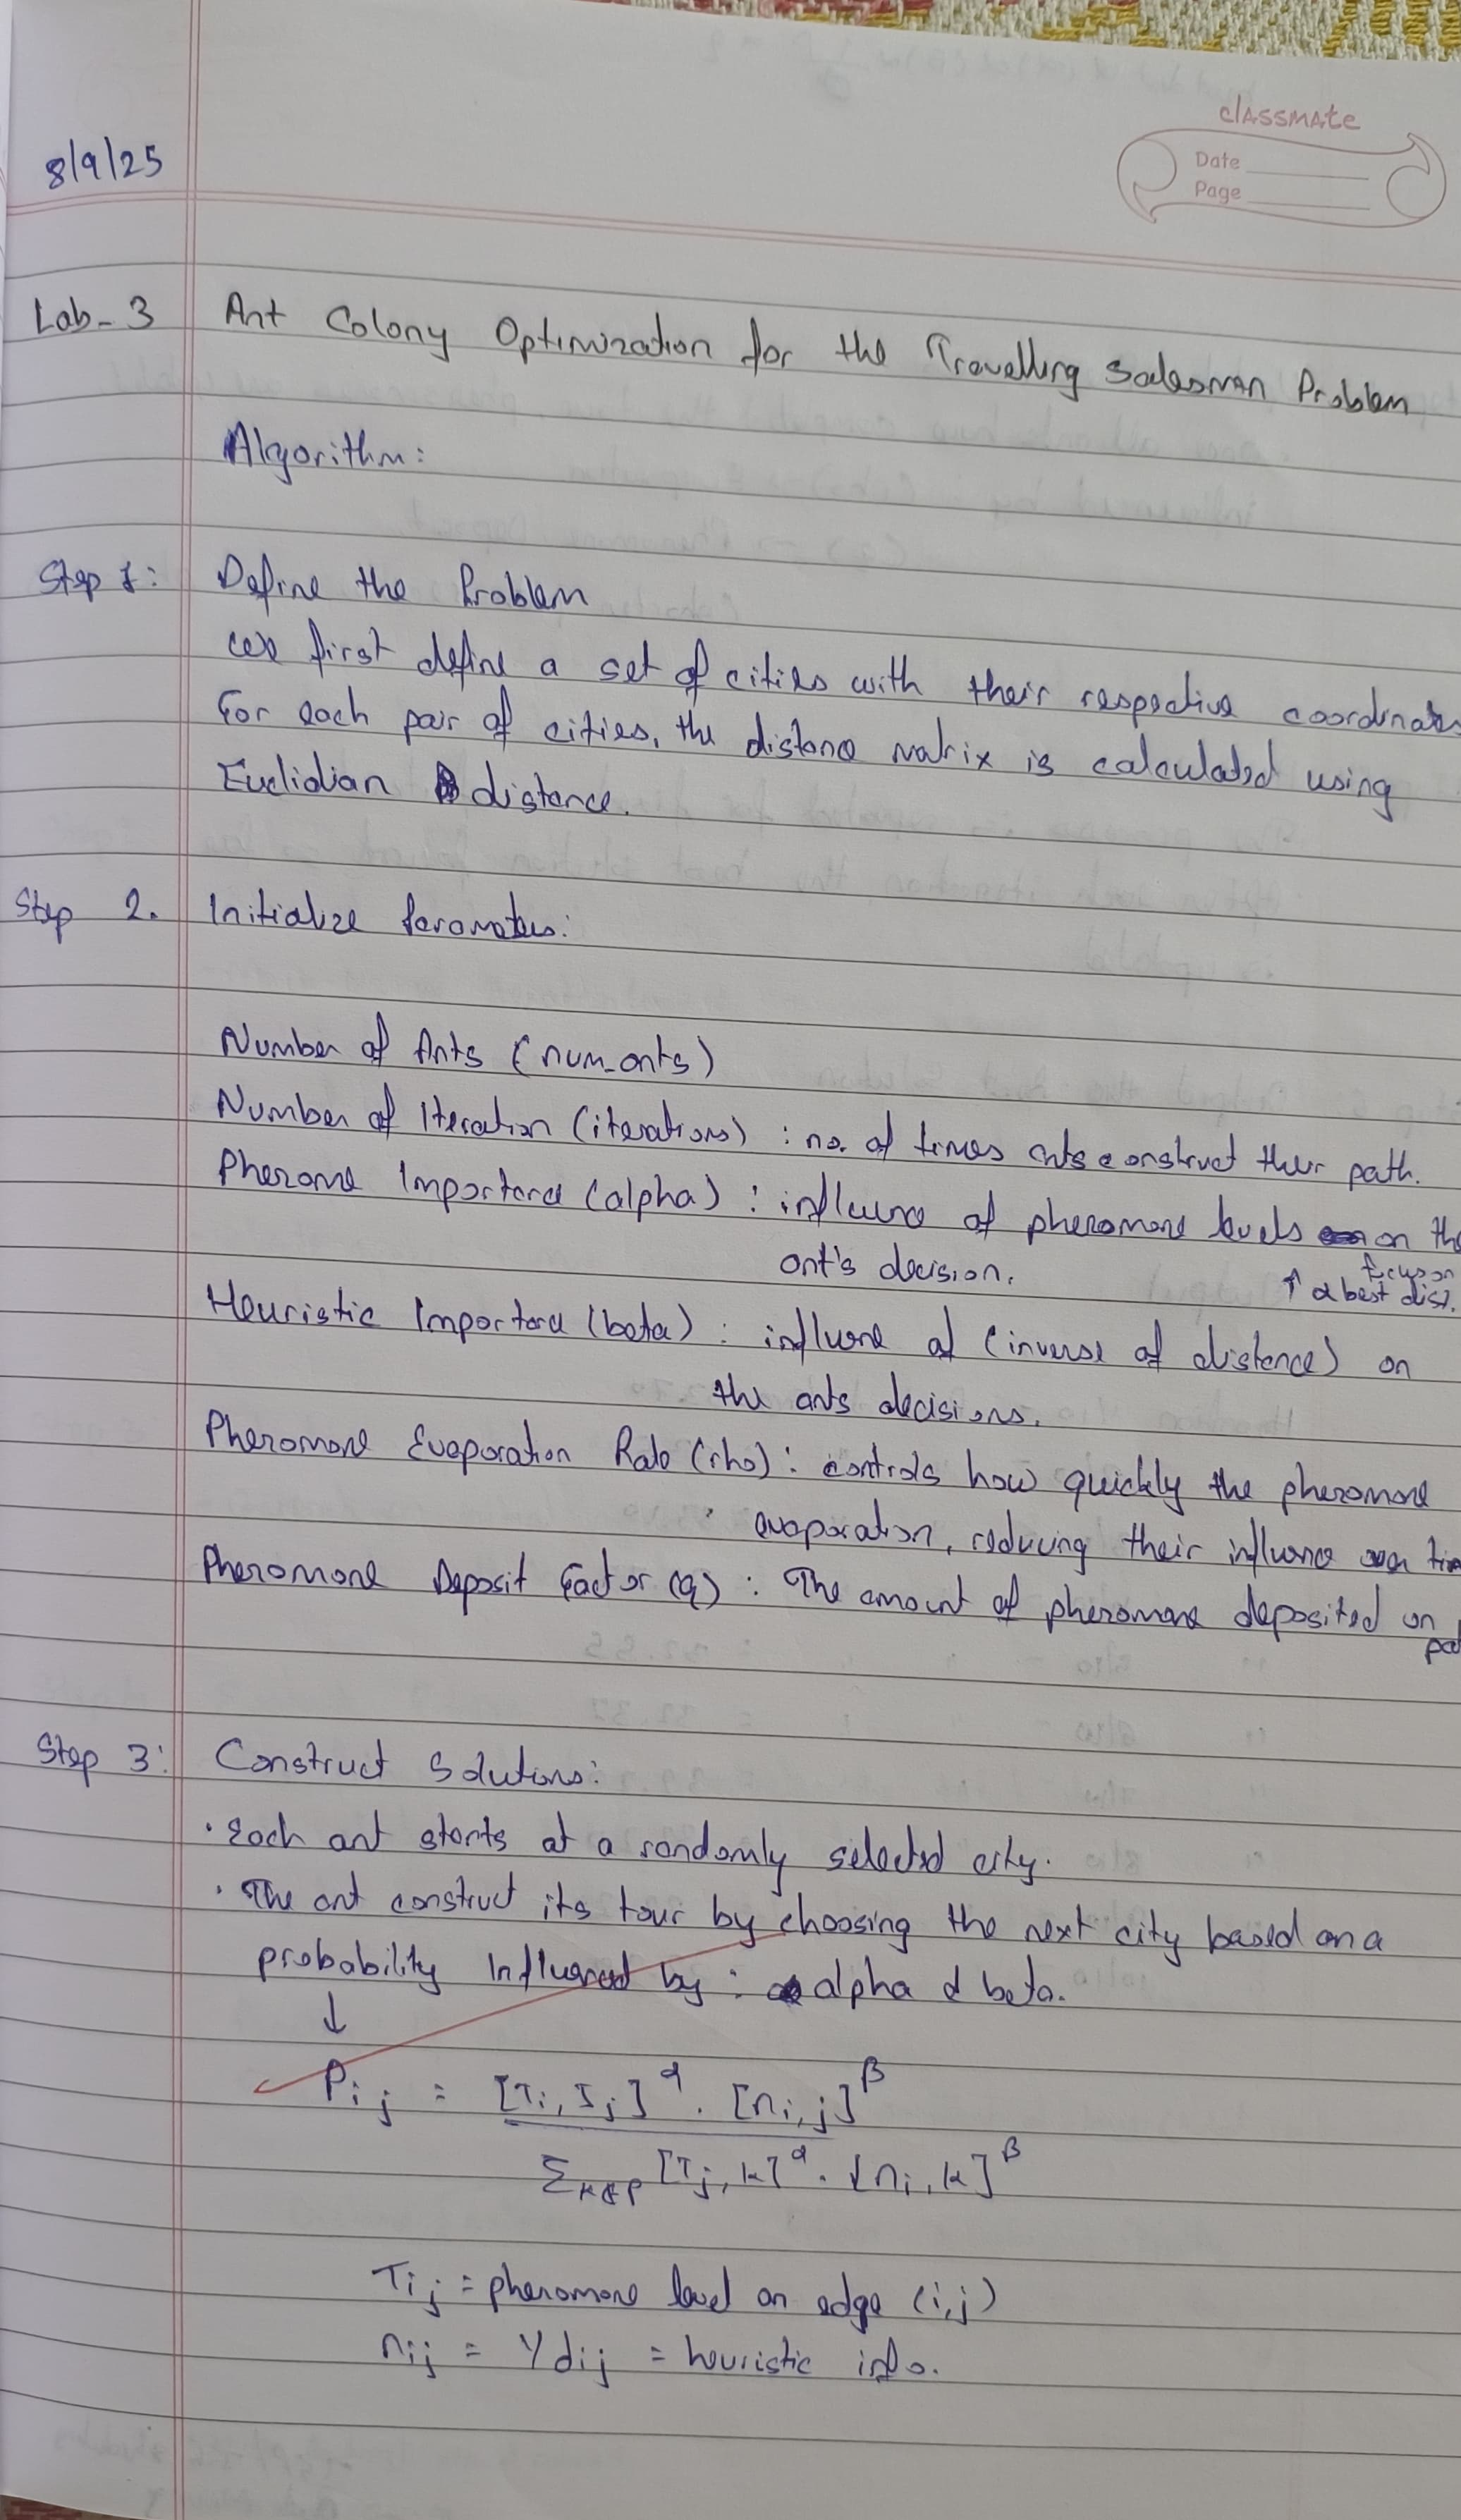 classmate
Date
Page
8/9/25
Lab-3 Ant Colony Optimization for the Travelling Salesman Problem
Algorithm:
Step 1: Define the Problem
We first define a set of cities with their respective coordinates
For each pair of cities, the distance matrix is calculated using
Euclidian distance.
Step 2. Initialize Parameters:
Number of Ants (num_ants)
Number of Iteration (iterations) : no. of times ants construct their path.
Pherome Importance (alpha) : influence of pheromone levels on the
ant's decision.
focus on
↑ α best dist.
Heuristic Importance (beta) : influence of (inverse of distance) on
the ants decisions.
Pheromone Evaporation Rate (rho) : controls how quickly the pheromone
evaporation, reducing their influence over
Pheromone Deposit Factor (q) : The amount of pheromone deposited on
Step 3: Construct Solutions:
· Each ant starts at a randomly selected city.
· The ant construct its tour by choosing the next city based on a
probability influenced by : alpha & beta.
↓
Pij = [Ti, Tj]^α . [ni,j]^β
Σ [Tj,k]^α . [ni,k]^β
Tij = pheromone level on edge (i,j)
nij = 1/dij = heuristic info.